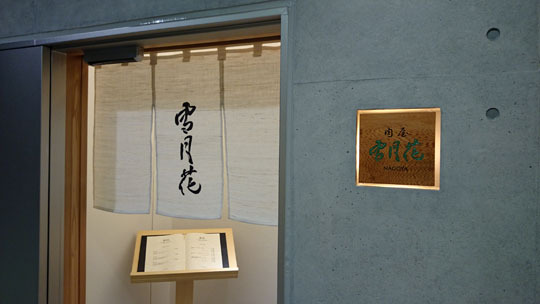 雪月花
肉屋
雪月花
NAGOYA